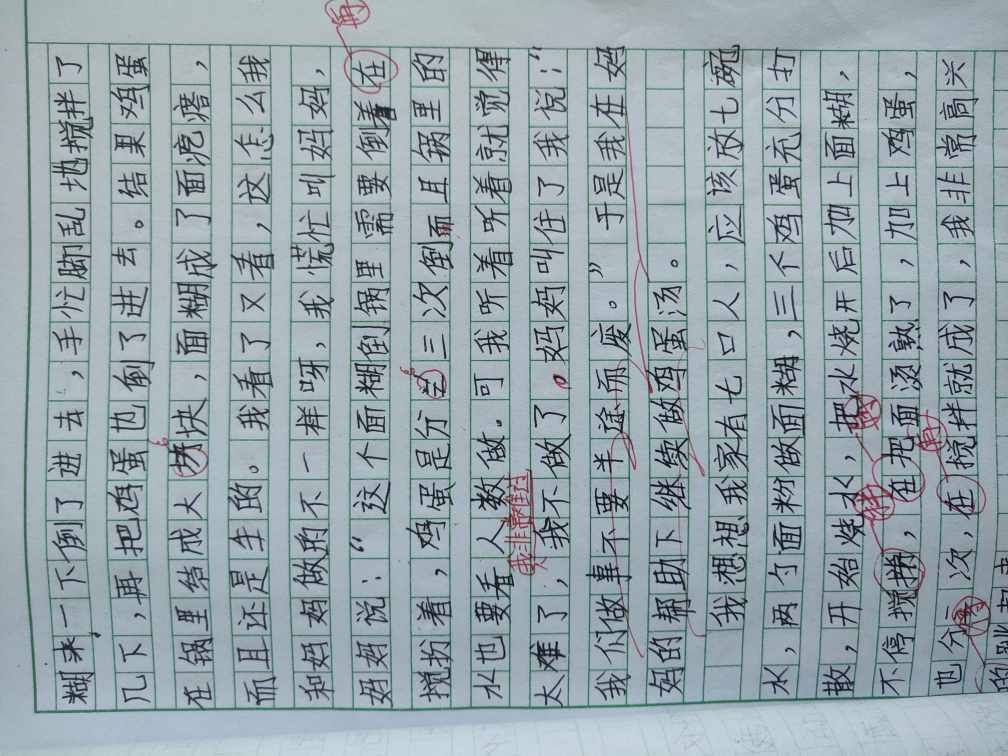 糊来一下倒了进去，手忙脚乱地搅拌了
几下，再把鸡蛋也倒了进去。结果鸡蛋
在锅里结成大块块，面糊成了面疙瘩，
而且还是生的。我看了又看，这怎么我
和妈妈做的不一样呀，我慌忙叫妈妈，
再
妈妈说：“这个面糊倒锅里需要倒着在
搅扮着，鸡蛋是分三次倒而且锅里的
水也要看人数做。可我听着听着就觉得
我非常
太难了，我不做了。妈妈叫住了我说：“
我们做事不要半途而废。”于是我在妈
妈的帮助下继续做鸡蛋汤。
我想想我家有七口人，应该放七碗
水，两个面粉做面糊，三个鸡蛋充分打
散，开始烧水，把水烧开后加上面糊，
再
不停搅拌，在把面烫熟了，加上鸡蛋，
再
也分次，在搅拌就成了，我非常高兴
的